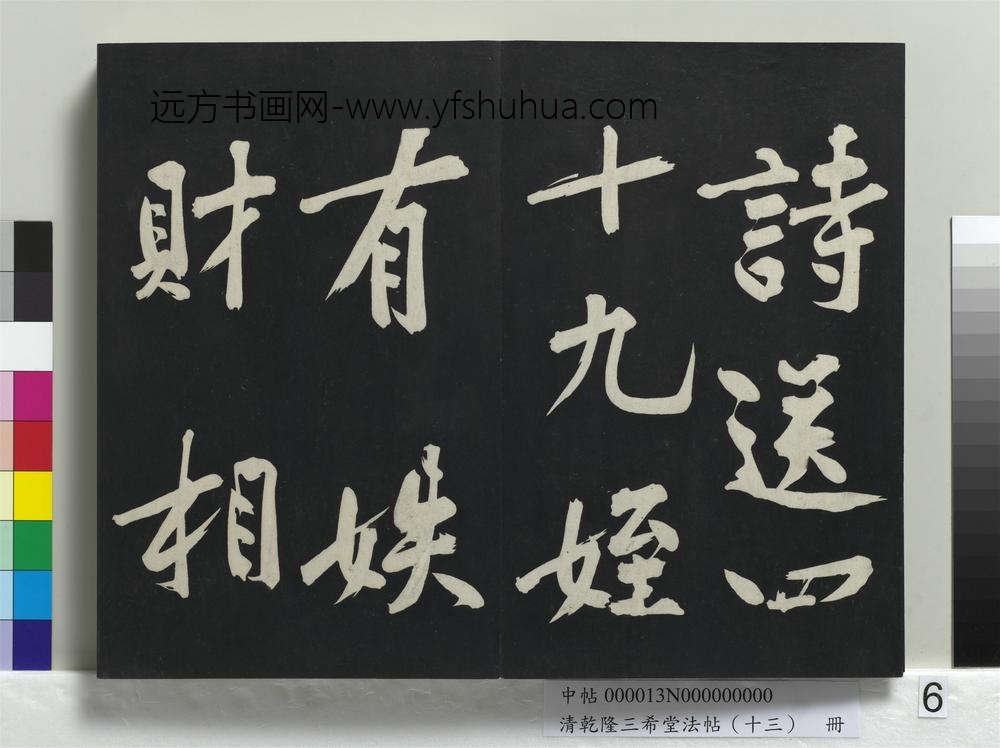 远方书画网-www.yfshuhua.com
詩送四
十九姪
有妷
財相
中帖 000013N000000000
清乾隆三希堂法帖（十三） 冊
6